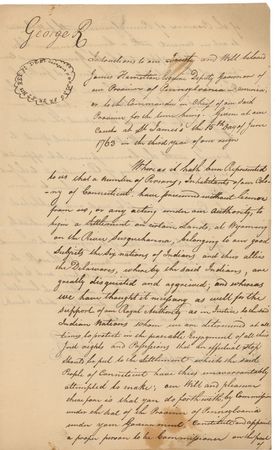 George R
Instructions to our Trusty and Well beloved
James Hamilton Esquire Deputy Governor of
our Province of Pensylvania in America
or to the Commander in Chief of our said
Province for the time being. Given at our
Court at St James's the 15th Day of June
1763 in the third year of our reign
Whereas it hath been Represented
to us that a number of Persons, Inhabitants of our Colo-
ny of Connecticut, have presumed without licence
from us, or any acting under our Authority, to
begin a settlement on certain Lands, at Wyoming
on the River Susquehanna, belonging to our good
Subjects the Six nations of Indians and their allies
the Delawares, whereby the said Indians, are
greatly disgusted and aggrieved, and whereas
we have thought it necessary as well for the
support of our Royal Authority as in Justice to the said
Indian Nations whom we are determined at all
times, to protect in the peaceable Enjoyment of all their
just rights and Possessions that an effectual stop
should be put to the settlement which the said
People of Connecticut have thus unwarrantably
attempted to make; our Will and pleasure
therefore is that you do forthwith by Commission
under the seal of the Province of Pensylvania
under your Government, Constitute and appoint
a proper person to be Commissioner on the part